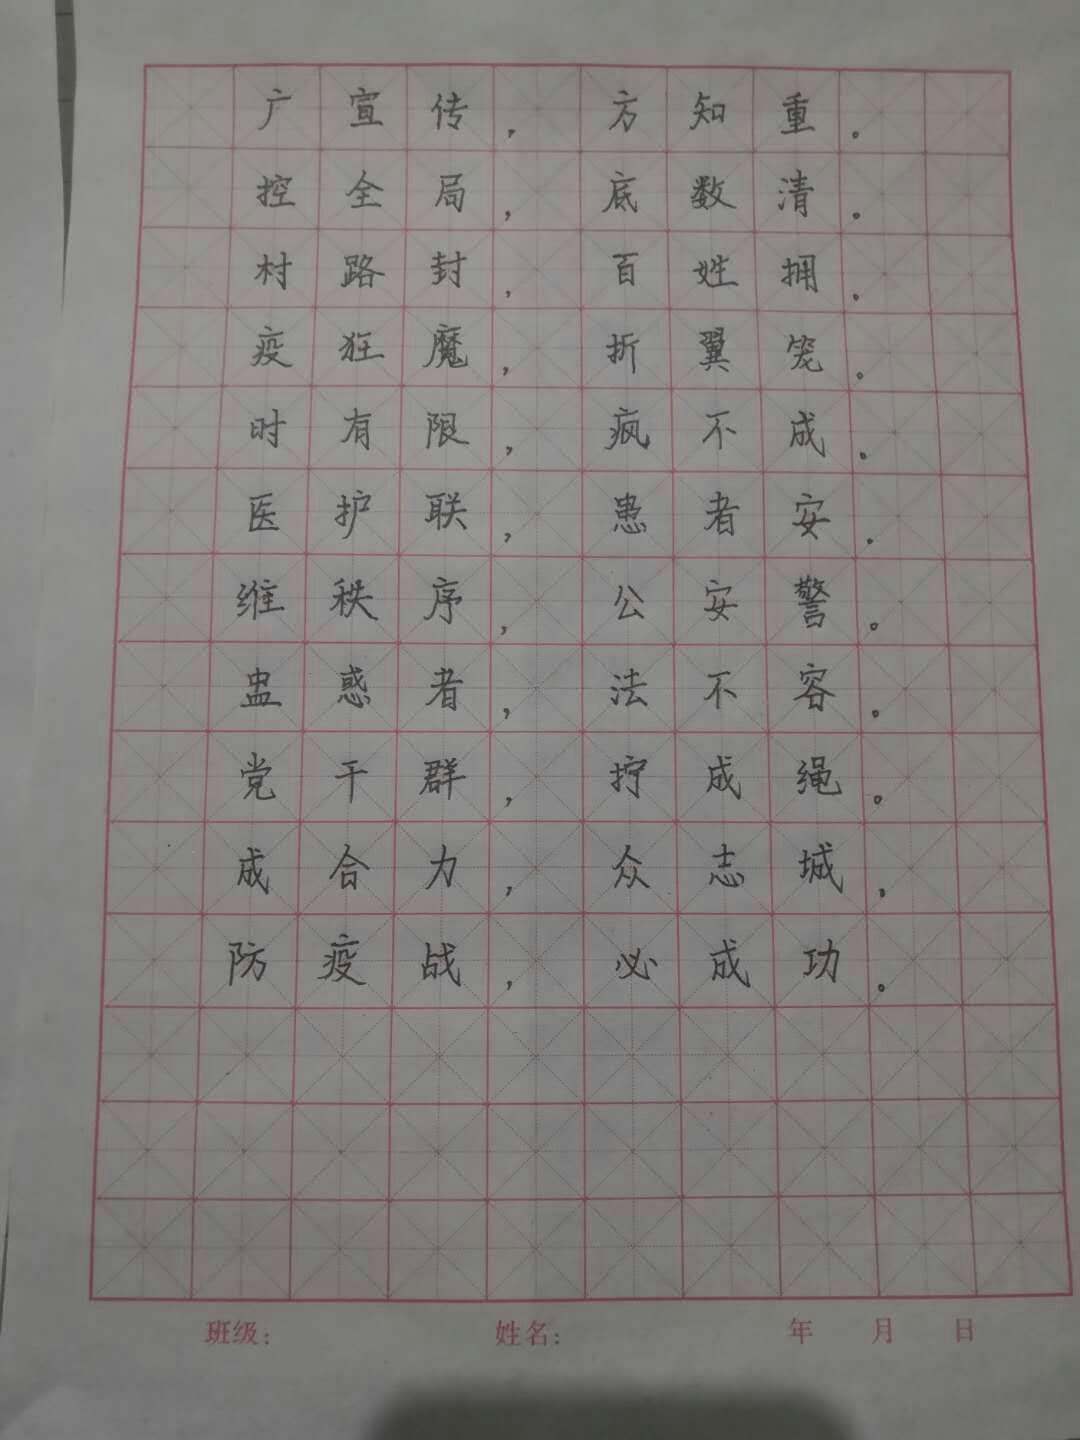 广宣传，方知重。
控全局，底数清。
村路封，百姓拥。
疫狂魔，折翼笼。
时有限，疯不成。
医护联，患者安。
维秩序，公安警。
蛊惑者，法不容。
党干群，拧成绳。
成合力，众志城。
防疫战，必成功。
班级： 姓名： 年 月 日